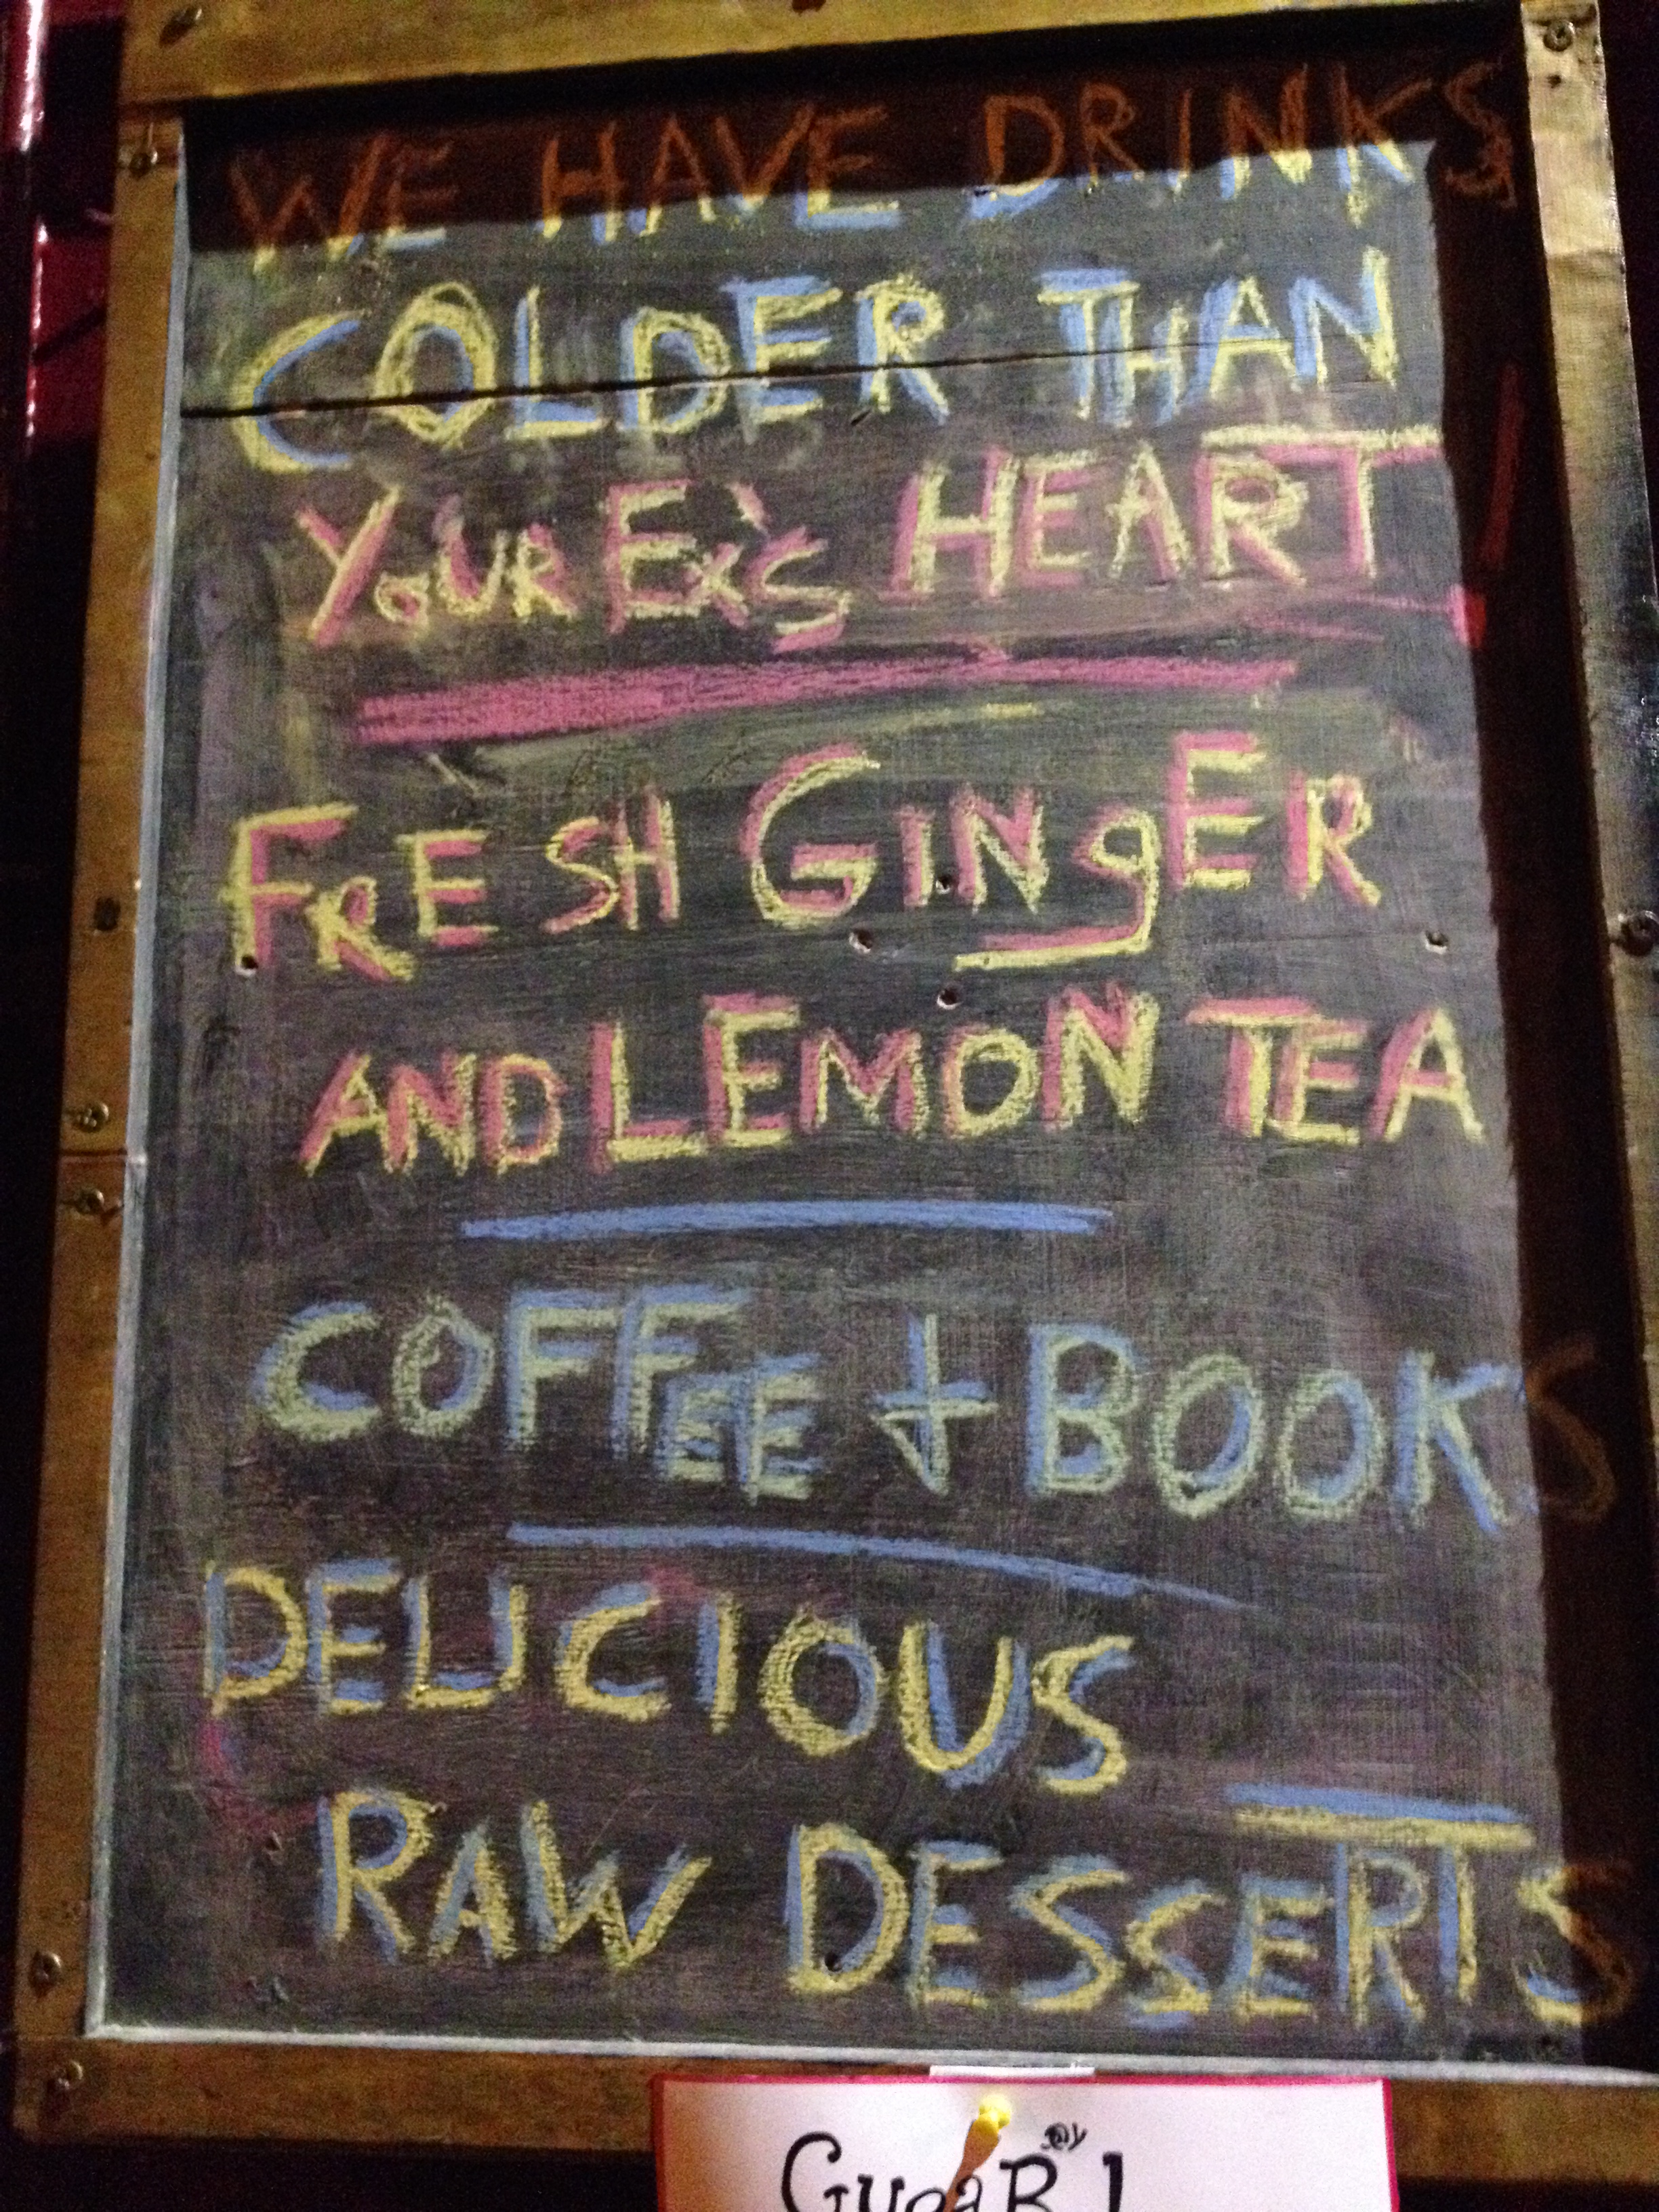 WE HAVE DRINKS
COLDER THAN
YOUR EX'S HEART
FRESH GINgER
AND LEMON TEA
COFFEE + BOOKS
DELICIOUS
RAW DESSERTS